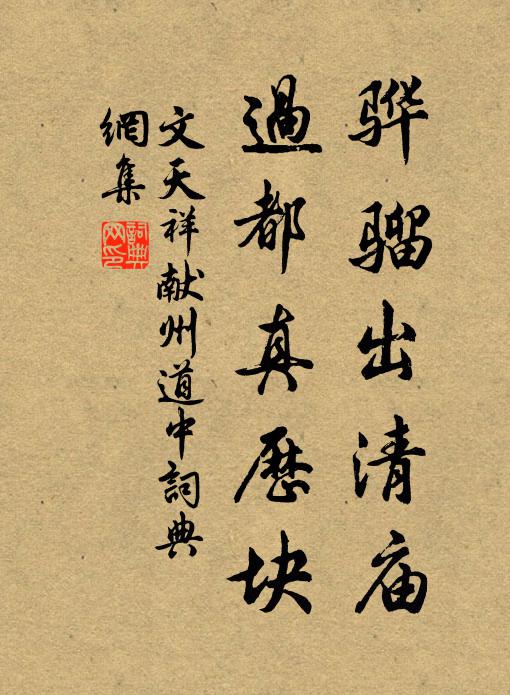 骅骝出清庙
過都真歷块
文天祥献州道中詞典
網集
詞典
网印